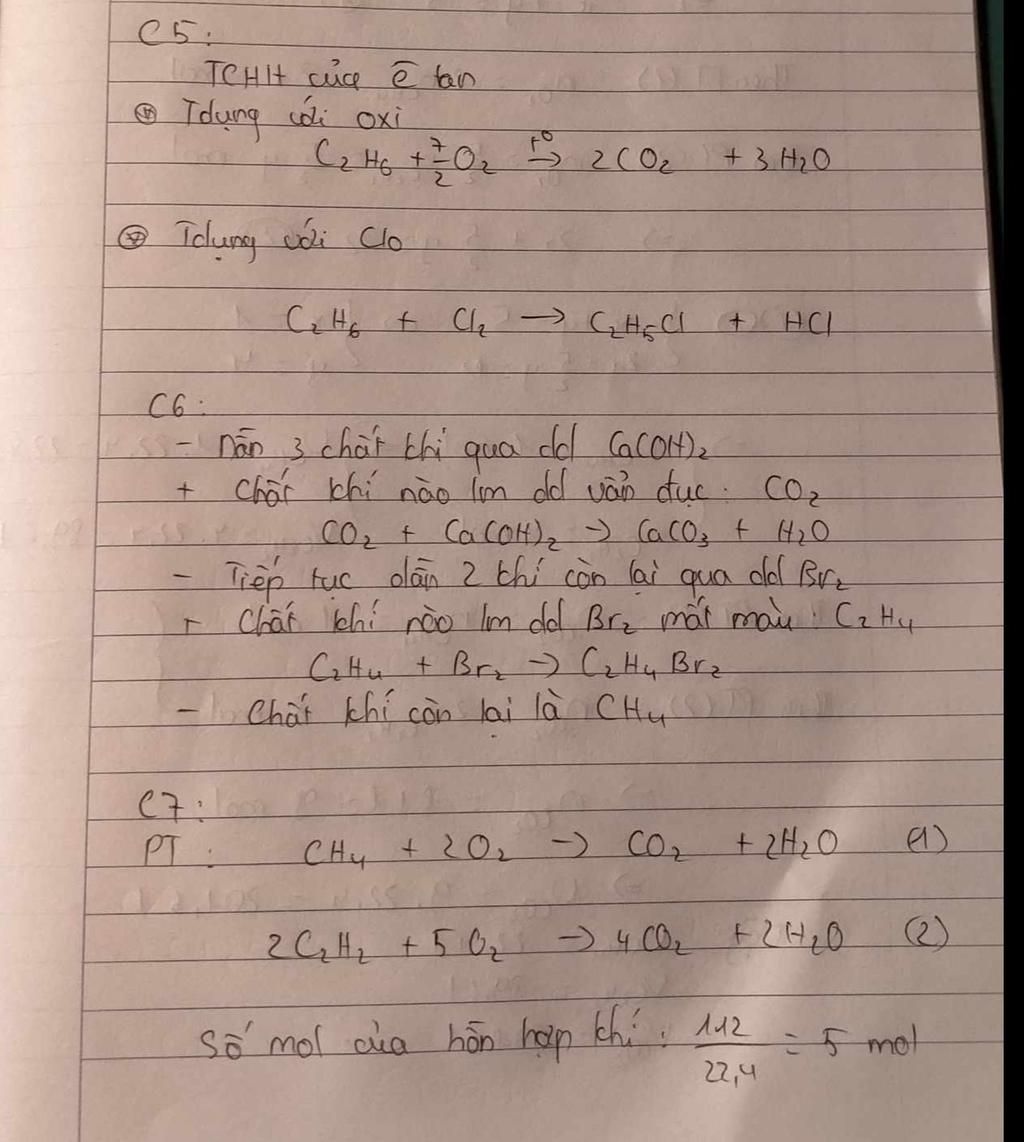 C5:
TCHH của ē tan
⊛ Tdụng với oxi
C₂H₆ + 7/2 O₂ →(t⁰) 2CO₂ + 3H₂O
⊛ Tdụng với Clo
C₂H₆ + Cl₂ → C₂H₅Cl + HCl
C6:
- Dẫn 3 chất khí qua dd Ca(OH)₂
+ Chất khí nào lm dd vẩn đục: CO₂
CO₂ + Ca(OH)₂ → CaCO₃ + H₂O
- Tiếp tục dẫn 2 khí còn lại qua dd Br₂
+ Chất khí nào lm dd Br₂ mất màu: C₂H₄
C₂H₄ + Br₂ → C₂H₄Br₂
- Chất khí còn lại là CH₄
C7:
PT: CH₄ + 2O₂ → CO₂ + 2H₂O (1)
2C₂H₂ + 5O₂ → 4CO₂ + 2H₂O (2)
Số mol của hỗn hợp khí: 112/22,4 = 5 mol